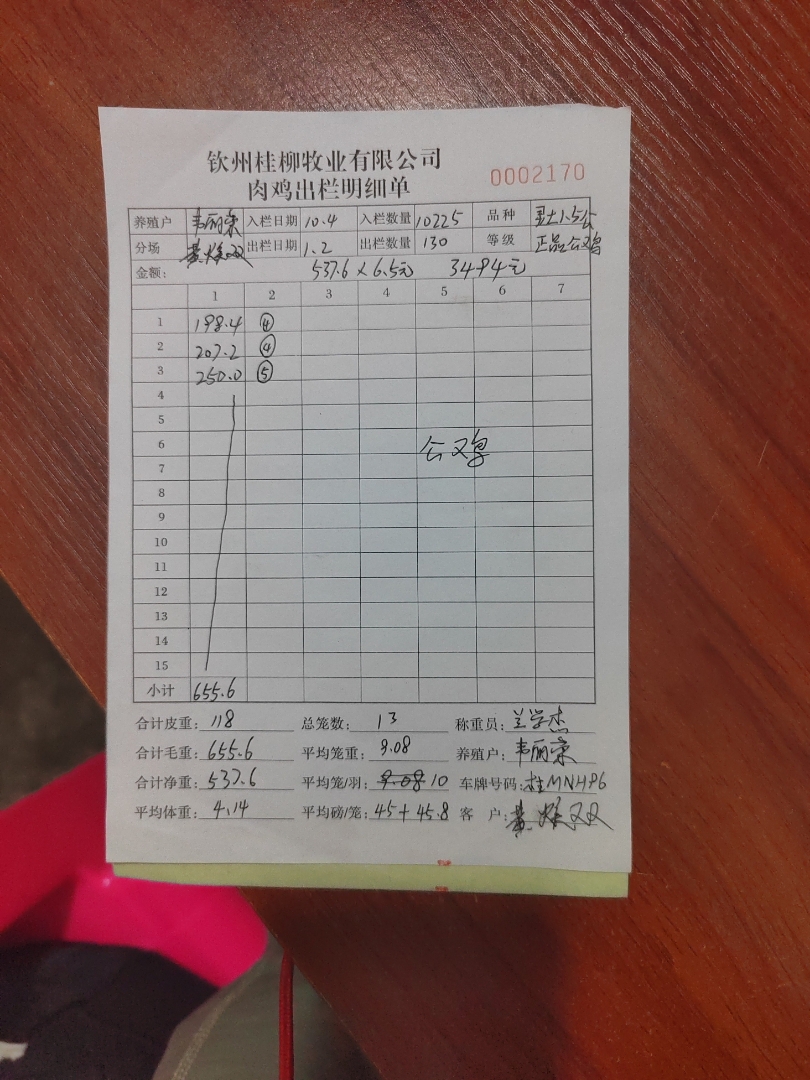 钦州桂柳牧业有限公司
肉鸡出栏明细单 0002170
养殖户 韦丽荣 入栏日期 10.4 入栏数量 10225 品种 土1.5公
分场 出栏日期 1.2 出栏数量 130 等级 正品公又鸟
金额: 537.6×6.5元 3494元
1 2 3 4 5 6 7
1 198.4 ④
2 207.2 ④
3 250.0 ⑤
4
5
6 公又鸟
7
8
9
10
11
12
13
14
15
小计 655.6
合计皮重: 118 总笼数: 13 称重员: 兰学杰
合计毛重: 655.6 平均笼重: 9.08 养殖户: 韦丽荣
合计净重: 537.6 平均笼/羽: 9.08 10 车牌号码: 桂MNH96
平均体重: 4.14 平均磅/笼: 45+45.8 客 户: 黄 双